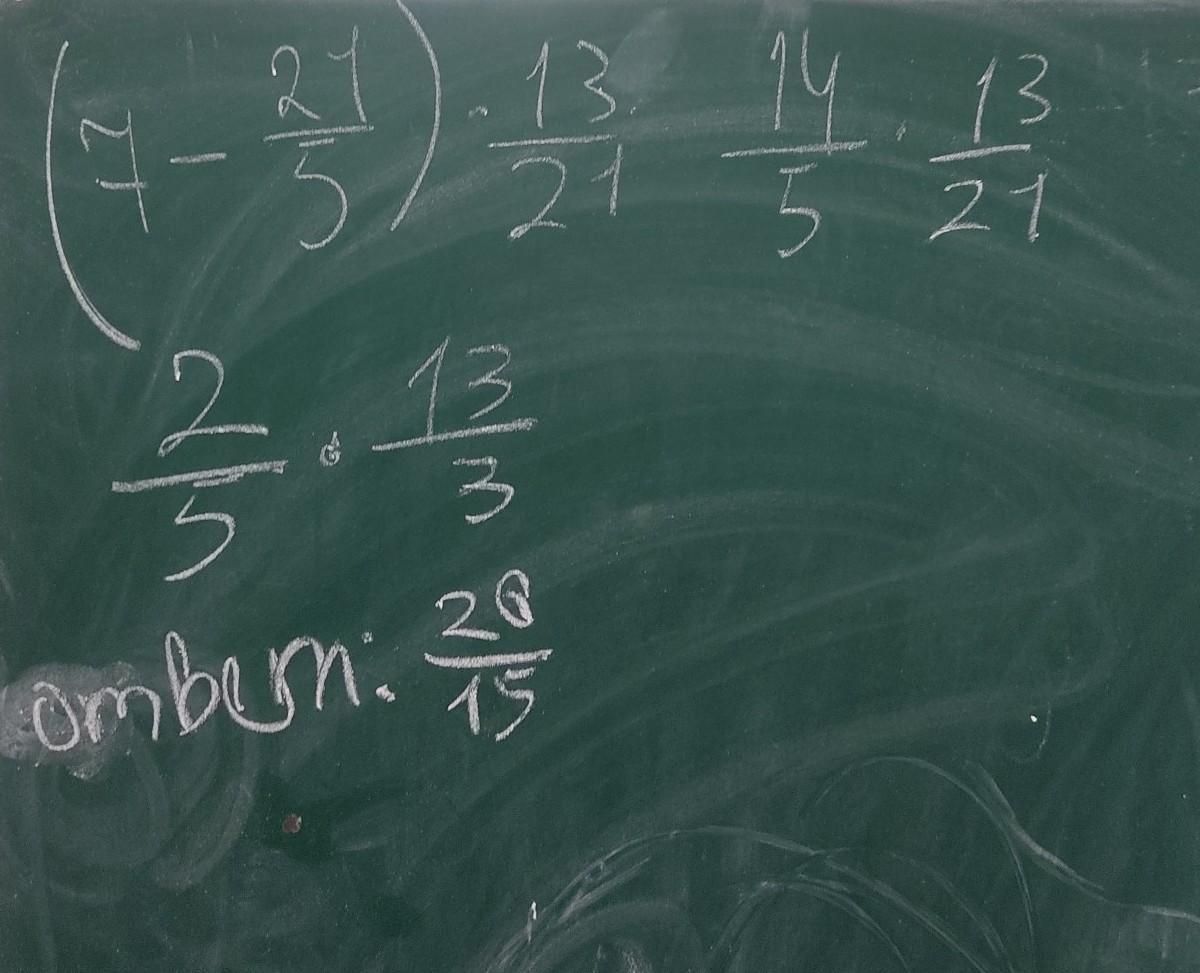 (7 - 21/5) · 13/21 14/5 · 13/21
2/5 · 13/3
ответ: 26/15